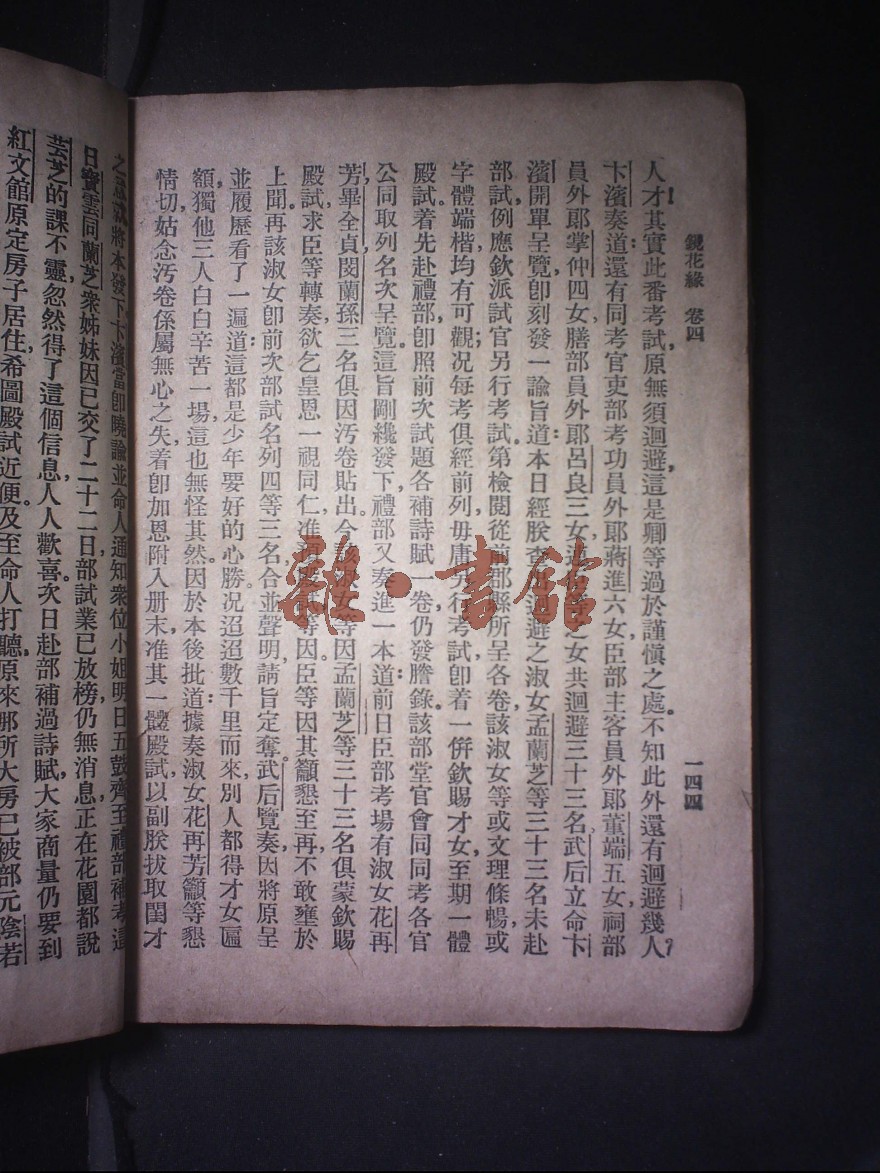 鏡花緣 卷四
一四四
人才其實此番考試原無須迴避這是卿等過於謹慎之處不知此外還有迴避幾人
卞濱奏道還有同考官吏部考功員外郞蔣進六女臣部主客員外郞董端五女祠部
員外郞掌仲四女膳部員外郞呂良三女之女共迴避三十三名武后立命卞
濱開單呈覽卽刻發一諭旨道本日經朕查迴避之淑女孟蘭芝等三十三名未赴
部試例應欽派試官另行考試第檢閱從前郡縣所呈各卷該淑女等或文理條暢或
字體端楷均有可觀况每考俱經前列毋庸另行考試卽着一倂欽賜才女至期一體
殿試着先赴禮部卽照前次試題各補詩賦一卷仍發謄錄該部堂官會同同考各官
公同取列名次呈覽這旨剛纔發下禮部又奏進一本道前日臣部考場有淑女花再
芳畢全貞閔蘭蓀三名俱因汚卷貼出今該淑女等因孟蘭芝等三十三名俱蒙欽賜
殿試求臣等轉奏欲乞皇恩一視同仁准等因臣等因其籲懇至再不敢壅於
上聞再該淑女卽前次部試名列四等三名合並聲明請旨定奪武后覽奏因將原呈
並履歷看了一遍道這都是少年要好的心勝况迢迢數千里而來別人都得才女匾
額獨他三人白白辛苦一場這也無怪其然因於本後批道據奏淑女花再芳籲等懇
情切姑念汚卷係屬無心之失着卽加恩附入册末准其一體殿試以副朕拔取閨才
之將本發下卞濱當卽曉諭並命人通知衆位小姐明日五鼓齊至禮部補考這
日寶雲同蘭芝衆姊妹因已交了二十二日部試業已放榜仍無消息正在花園都說
芸芝的課不靈忽然得了這個信息人人歡喜次日赴部補過詩賦大家商量仍要到
紅文館原定房子居住希圖殿試近便及至命人打聽原來那所大房已被部元陰若
雜·書館